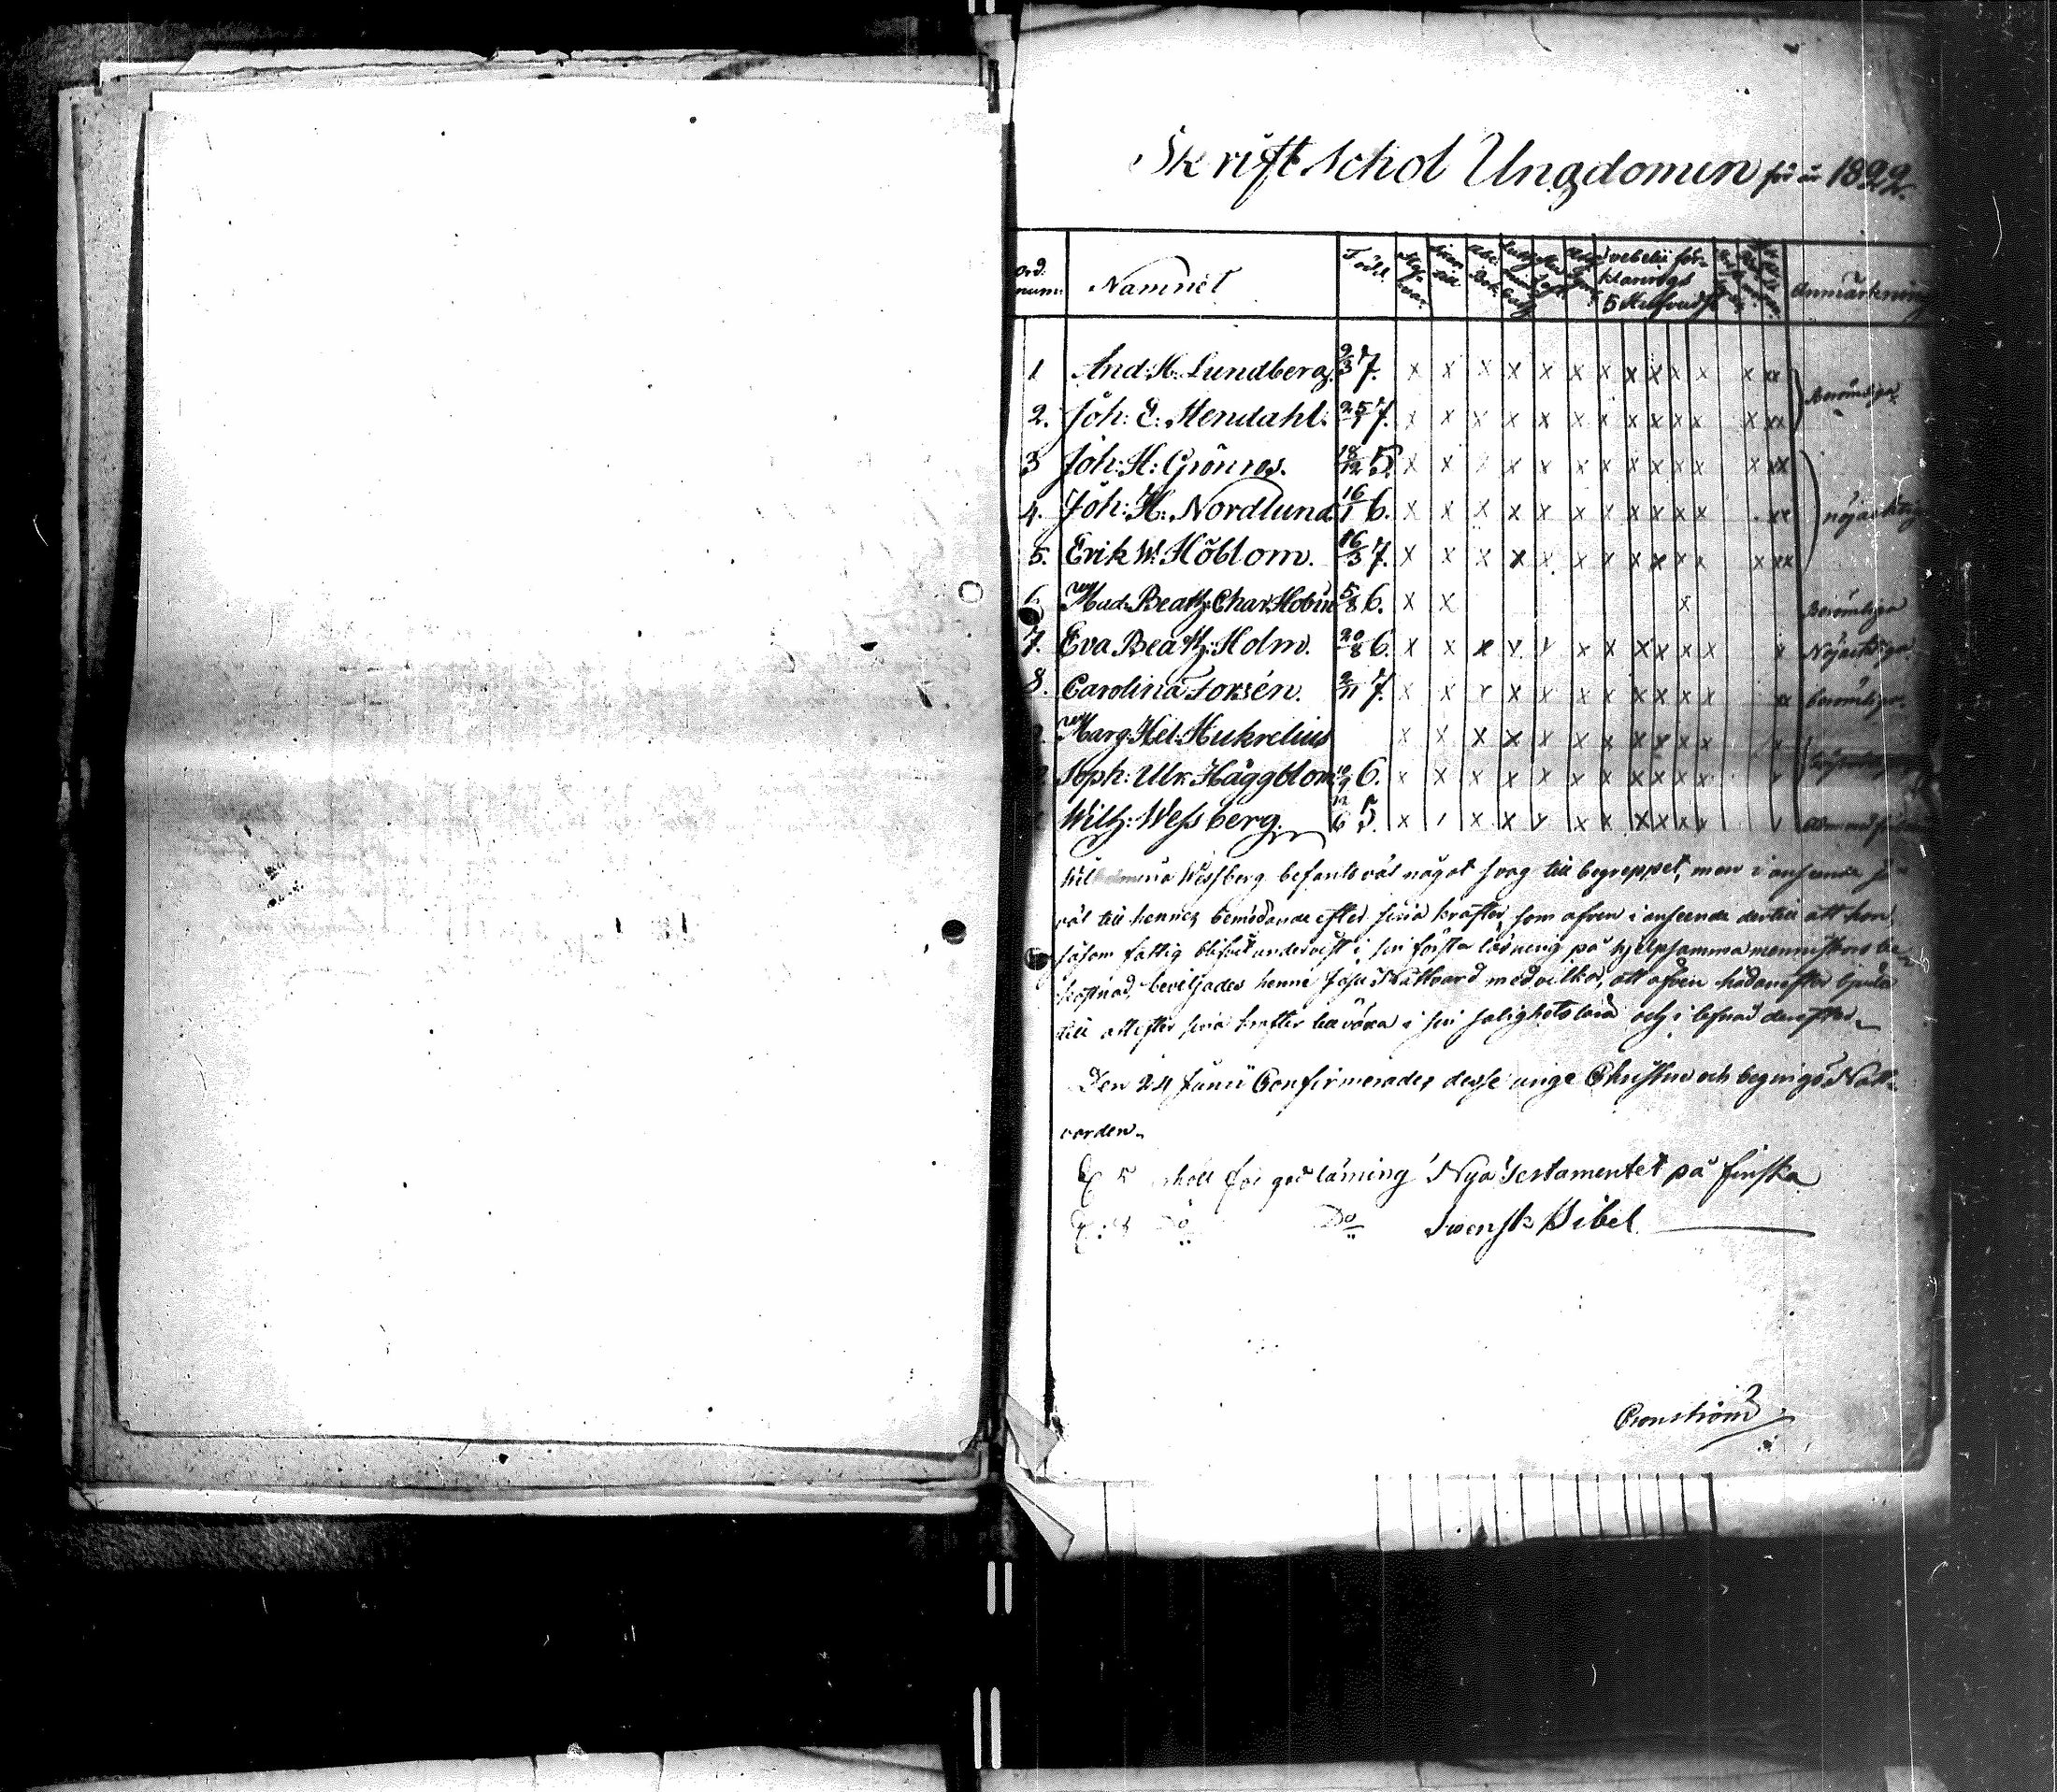 Skriftschol Ungdomen för år 1822.
Ord. num: Namnet Född. Abc Bok Svebelii förklarings 5 Hufvudst. Anmärkning
1 And: H: Lundberg. 9/3 7. x x x x x x x x x x x x xx Berömliga
2. Joh: E: Stendahl. 25/1 7. x x x x x x x x x x x x xx
3 Joh: H: Grönros. 18/12 5. x x x x x x x x x x x xx
4. Joh: H: Nordlund. 16/1 6. x x x x x x x x x x x xx nöjachtig
5. Erik W. Höblom. 16/3 7. x x x x x x x x x x x x xx
6. Mad: Beatr: Char: 5/8 6. x x x Berömliga
7. Eva Beatr: Holm. 20/8 6. x x x x x x x x x x x x Nöjachtiga
8. Carolina Forsén. 2/11 7. x x x x x x x x x x x xx berömliga.
Marg: Hel: x x x x x x x x x x x x
Soph: Ulr: Häggblom 6. x x x x x x x x x x x x
Wilh: Wessberg. 12/6 5. x x x x x x x x x x
Wilhelmina Wessberg befants väl något svag till begreppet, men i anseende så-
väl till hennes bemödande efter sina krafter, som äfven i anseende dertill att hon
såsom fattig blifvit undervist i sin första läsning på hjelpsamma menniskors be-
kostnad, beviljades henne Jesu Nattvard med vilkor, att äfven hädanefter bjuda
till att efter sina krafter tillväxa i sin salighets lära och i lefnad derefter.
Den 24 Junii Confirmerades desse unge Christne och begingo Natt-
varden.
för god läsning Nya Testamentet på finska
Do Do Svensk Bibel
Cronström